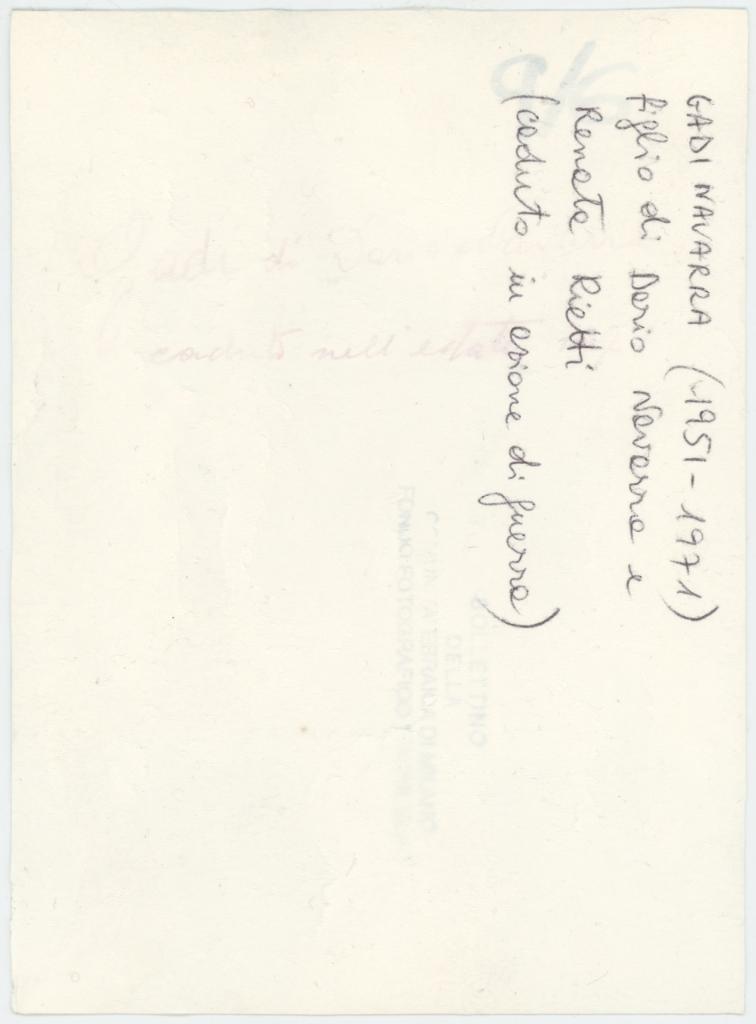 GADI NAVARRA (1951-1971)
figlio di Dario Navarra e
Renata Rietti
(caduto in azione di guerra)
di Dario
caduto nell'estate
BOLLETTINO
DELLA
COMUNITA EBRAICA DI MILANO
FONDO FOTOGRAFICO